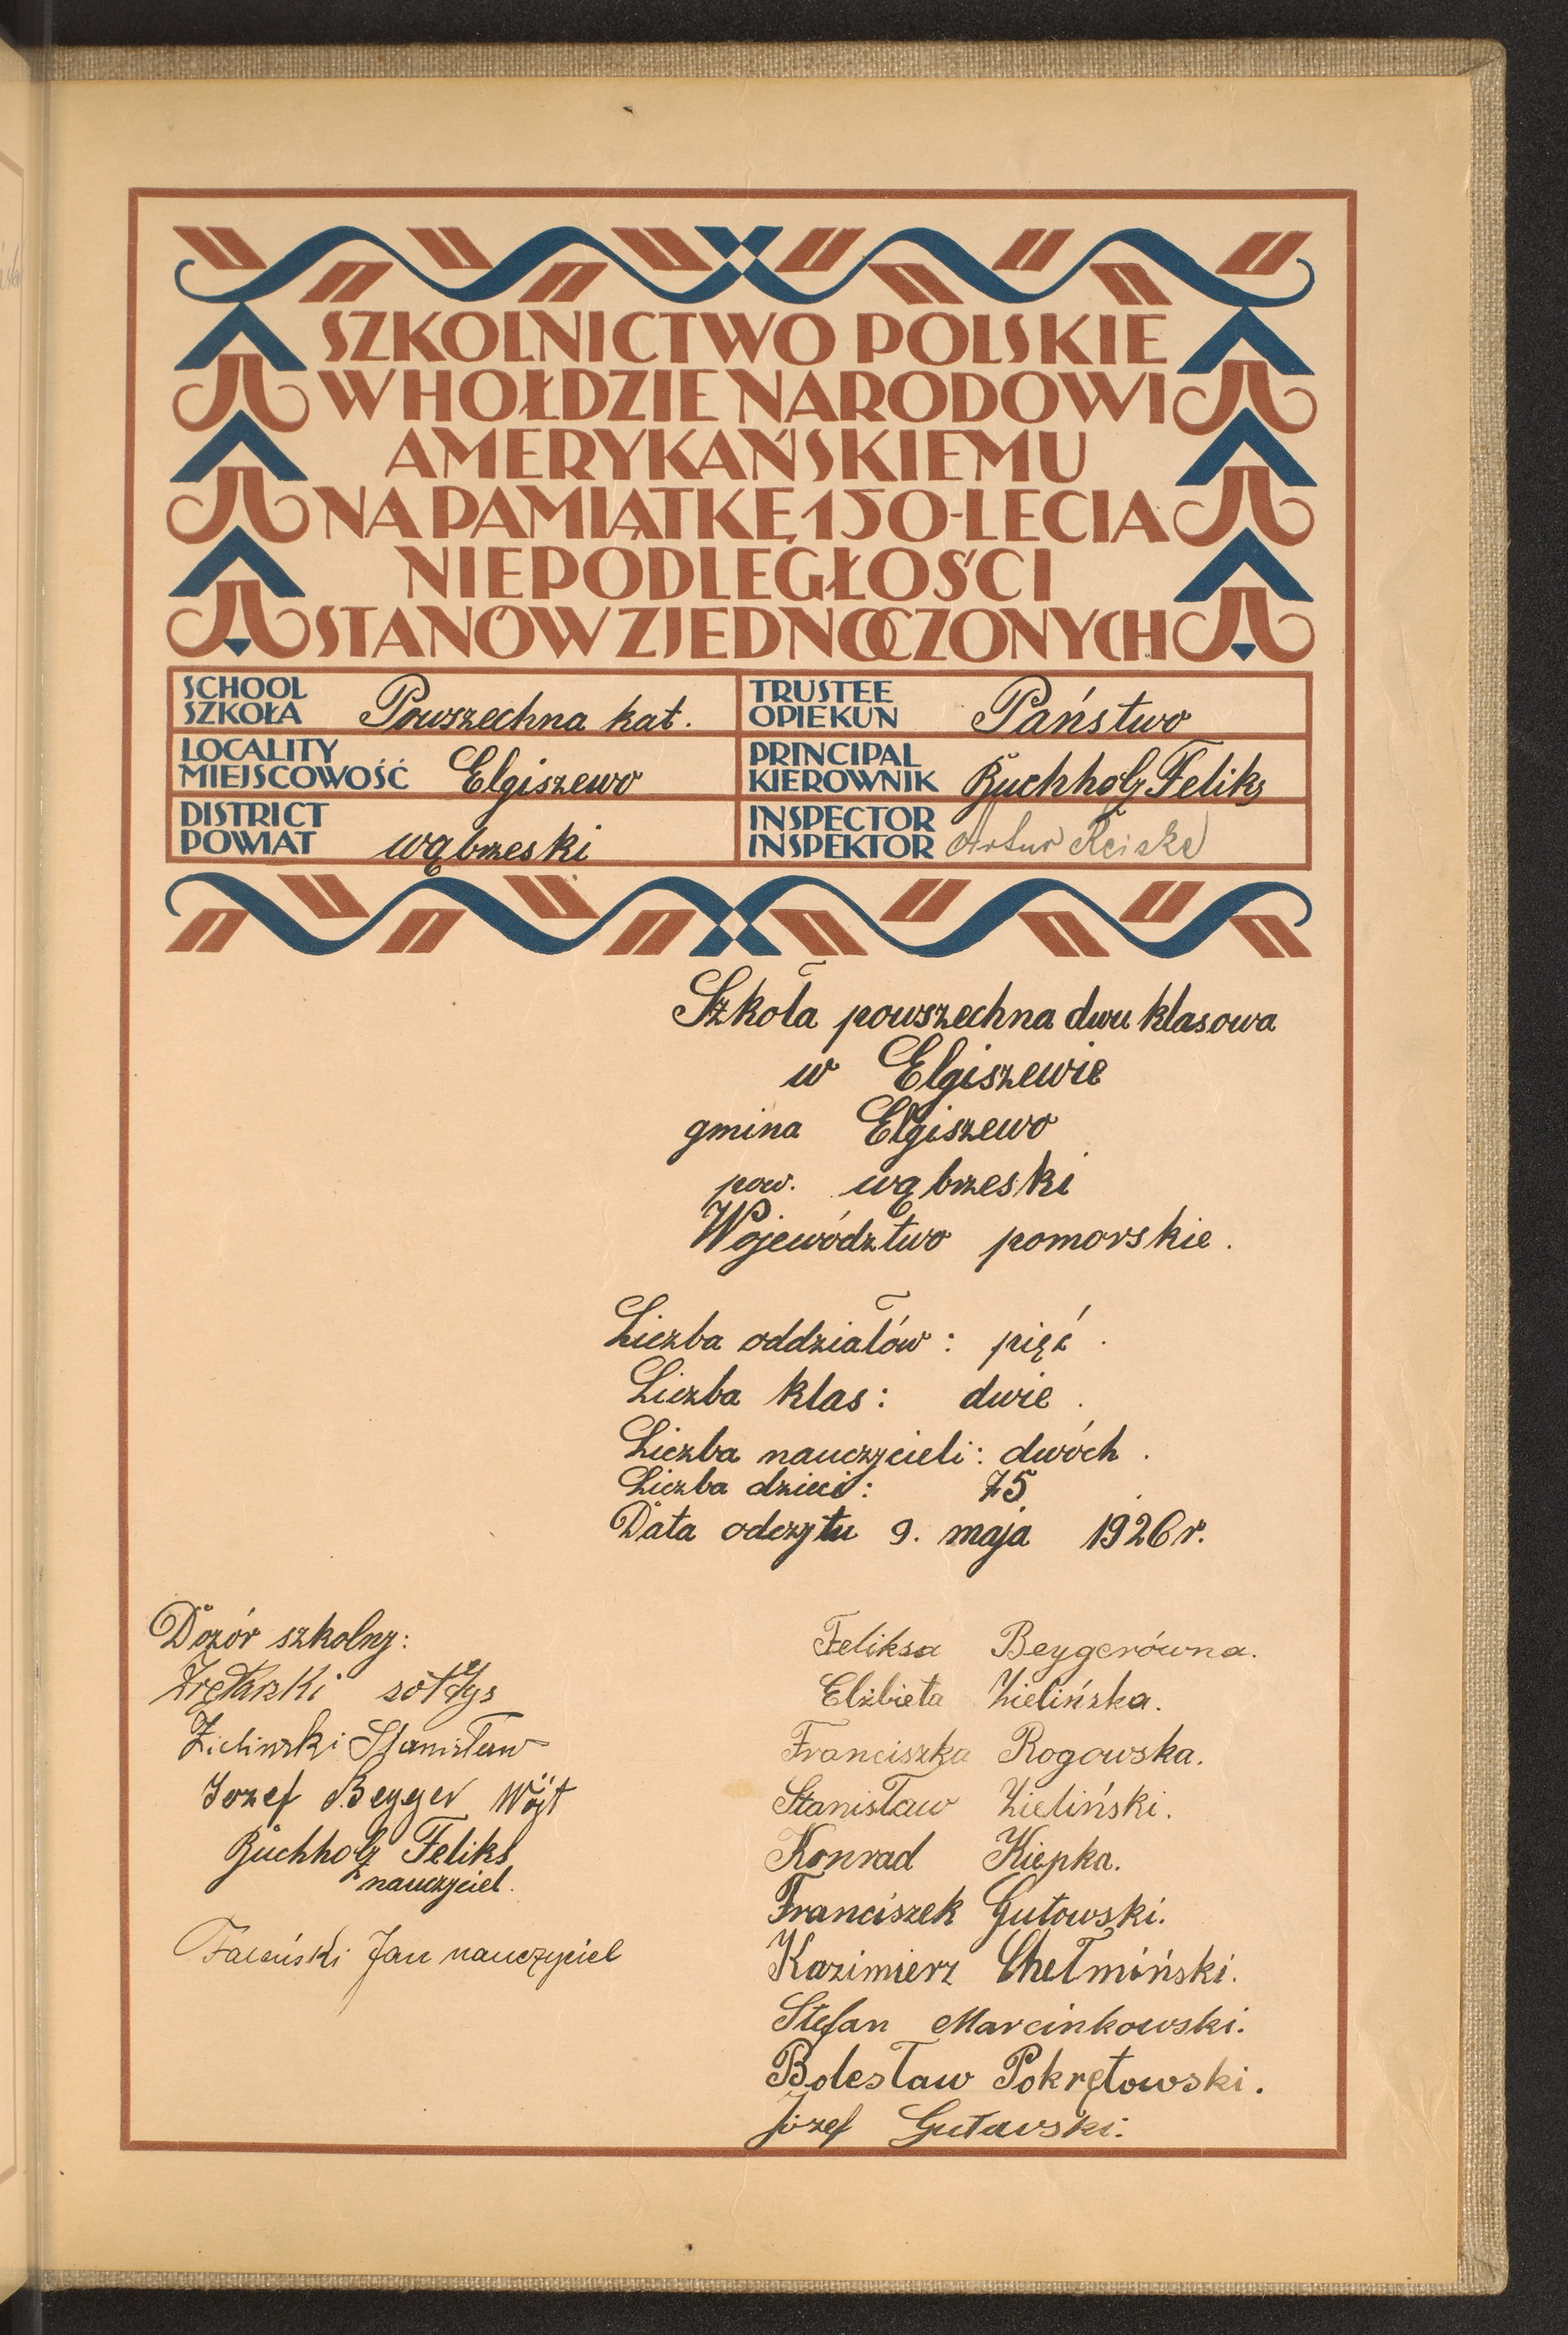 SZKOLNICTWO POLSKIE
W HOŁDZIE NARODOWI
AMERYKAŃSKIEMU
NA PAMIĄTKĘ 150-LECIA
NIEPODLEGŁOŚCI
STANÓW ZJEDNOCZONYCH
SCHOOL
SZKOŁA Powszechna kat.
TRUSTEE
OPIEKUN Państwo
LOCALITY
MIEJSCOWOŚĆ Elgiszewo
PRINCIPAL
KIEROWNIK Buchholz Feliks
DISTRICT
POWIAT wąbrzeski
INSPECTOR
INSPEKTOR Artur Reiske
Szkoła powszechna dwu klasowa
w Elgiszewie
gmina Elgiszewo
pow. wąbrzeski
Województwo pomorskie.
Liczba oddziałów: pięć.
Liczba klas: dwie.
Liczba nauczycieli: dwóch.
Liczba dzieci: 75
Data odczytu 9. maja 1926 r.
Dozór szkolny:
sołtys
Zielinski Stanisław
Jozef Beyger Wójt
Buchholz Feliks
nauczyciel.
Jan nauczyciel
Feliksa Beygerówna.
Elżbieta Zielińska.
Franciszka Rogowska.
Stanisław Zieliński.
Konrad Kiepka.
Franciszek Gutowski.
Kazimierz Chełmiński.
Stefan Marcinkowski.
Bolesław Pokrętowski.
Józef Gutowski.